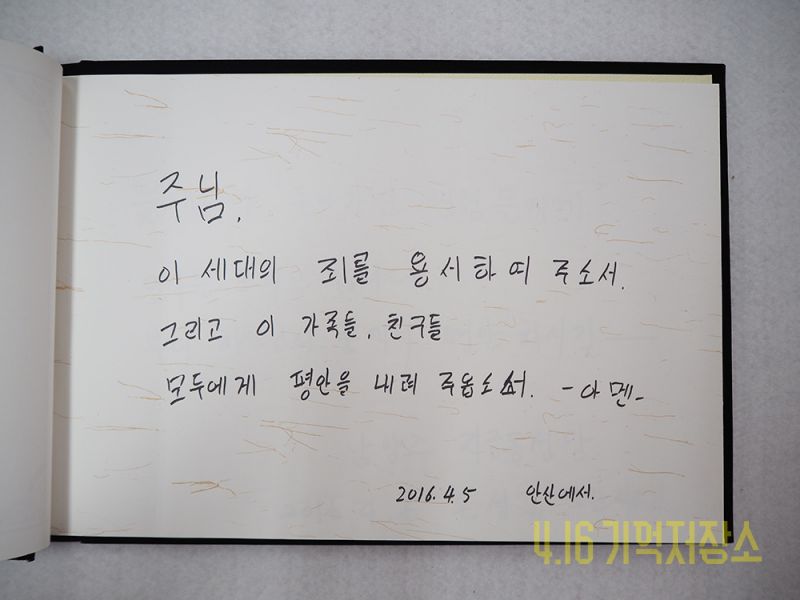 주님.
이 세대의 죄를 용서하여 주소서.
그리고 이 가족들, 친구들
모두에게 평안을 내려 주옵소서. -아멘-
2016.4.5 안산에서.
4.16 기억저장소